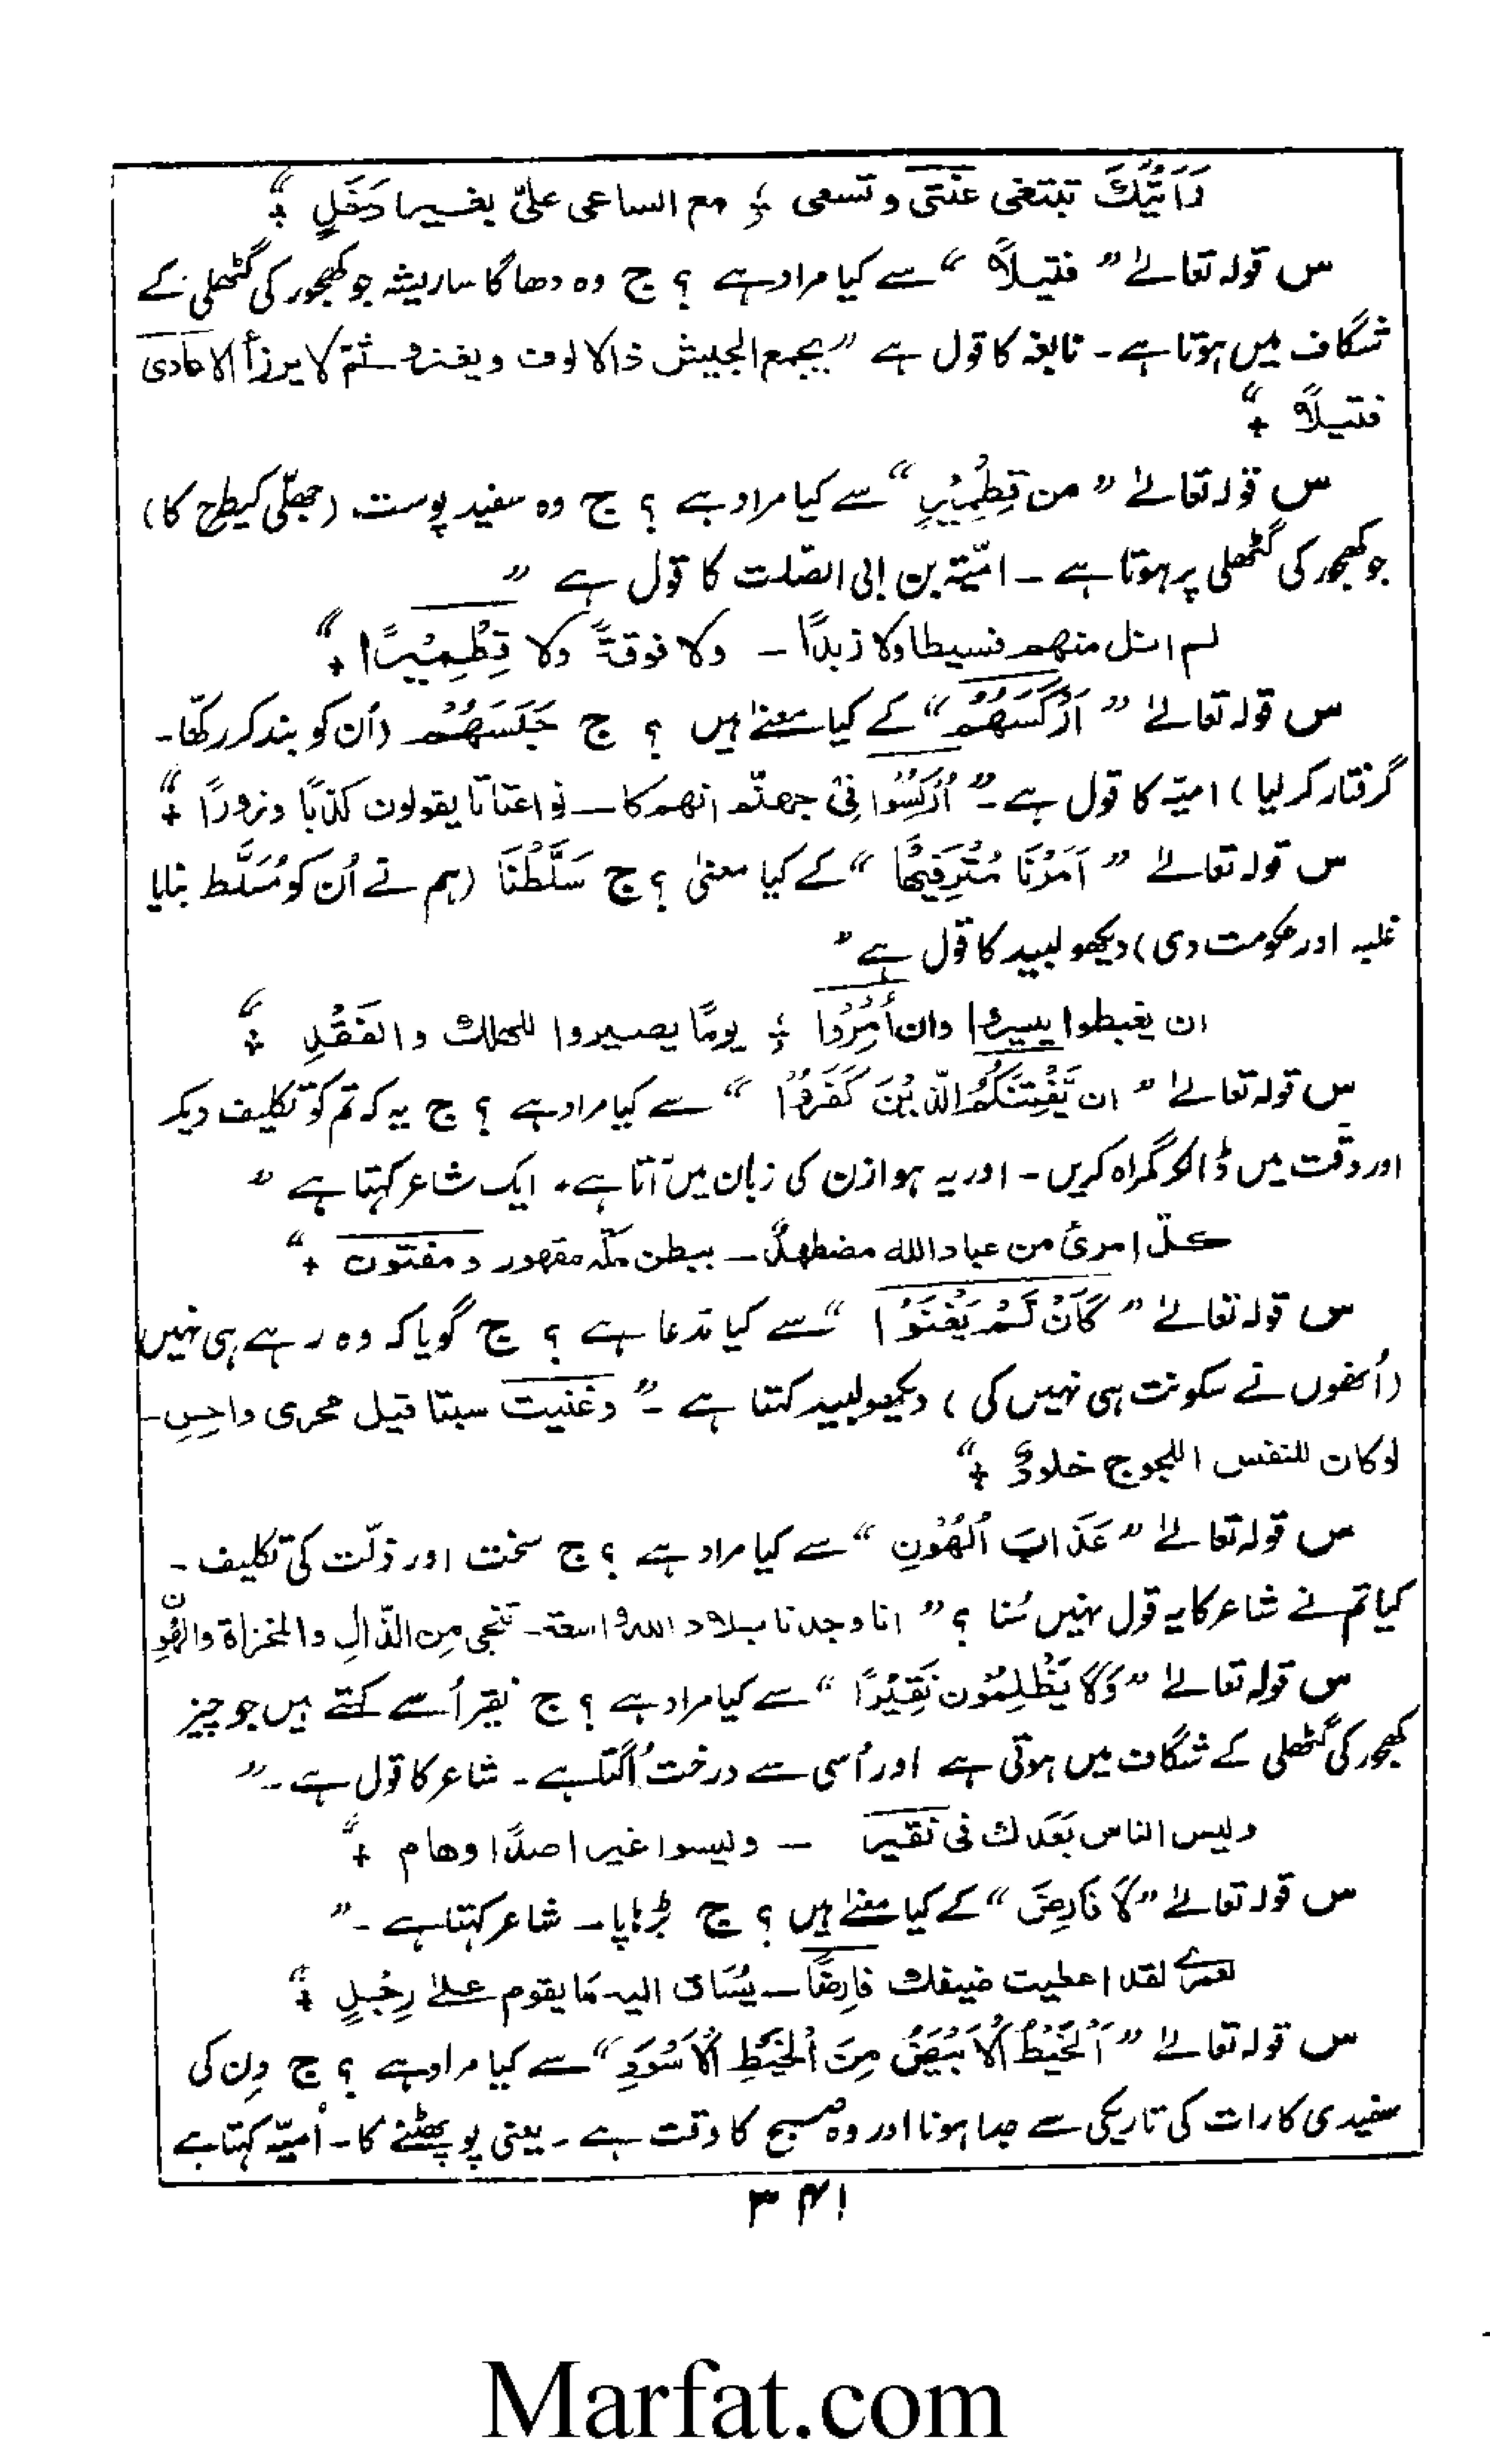 رَأَيْتُكَ تبتغی عنتی و تسعی ؛ مع الساعی علیّ بغیر دَخَلٍ "
س قولہ تعالےٰ " فتیلاً " سے کیا مراد ہے ؟ ج وہ دھاگا سا ریشہ جو کھجور کی گٹھلی کے
شگاف میں ہوتا ہے ۔ نابغہ کا قول ہے " یجمع الجیش ذا الالوف و یغزو ثمّ لا یرزأ الاعادی
فتیلاً "
س قولہ تعالےٰ " من قِطْمِیْرٍ " سے کیا مراد ہے ؟ ج وہ سفید پوست (جھلّی کیطرح کا)
جو کھجور کی گٹھلی پر ہوتا ہے ۔ امیّۃ بن ابی الصّلت کا قول ہے "
لم انل منھم فسیطا ولا زبدًا ۔ ولا فوقۃً ولا قِطْمِیْرًا "
س قولہ تعالےٰ " اَرْكَسَهُمْ " کے کیا معنےٰ ہیں ؟ ج حَبَسَهُمْ (اُن کو بند کر رکھّا ۔
گرفتار کر لیا) امیّہ کا قول ہے ۔" اُرْكِسُوْا فِیْ جھنّم انھم کا ۔ نوا عتاتا یقولون کذبًا وزورًا "
س قولہ تعالےٰ " اَمَرْنَا مُتْرَفِيْهَا " کے کیا معنیٰ ؟ ج سَلَّطْنَا (ہم نے اُن کو مُسَلَّط بنایا
غلبہ اور حکومت دی) دیکھو لبید کا قول ہے "
ان یغبطوا ییسروا وان اُمِرُوْا ؛ یومًا یصیروا للھلك والفَقْدِ "
س قولہ تعالےٰ " ان يَّفْتِنَكُمُ الَّذِيْنَ كَفَرُوْا " سے کیا مراد ہے ؟ ج یہ کہ تم کو تکلیف دیکر
اور دقّت میں ڈالکر گمراہ کریں ۔ اور یہ ہوازن کی زبان میں آتا ہے ۔ ایک شاعر کہتا ہے "
کلّ امرئ من عباد اللہ مضطھدٌ ۔ ببطن مکّہ مقھور و مفتون "
س قولہ تعالےٰ " كَاَنْ لَّمْ يَغْنَوْا " سے کیا مدعا ہے ؟ ج گویا کہ وہ رہے ہی نہیں
(اُنھوں نے سکونت ہی نہیں کی) دیکھو لبید کہتا ہے ۔" وغنیت سبتا قبل محری داحِسٍ ۔
لو کان للنفس اللجوج خلودٌ "
س قولہ تعالےٰ " عَذَابَ الْهُوْنِ " سے کیا مراد ہے ؟ ج سخت اور ذلّت کی تکلیف ۔
کیا تم نے شاعر کا یہ قول نہیں سُنا ؟ " انا وجدنا بلاد اللہ واسعۃ ۔ تنجی مِن الذّالِ والمخزاۃ والھُونِ
س قولہ تعالےٰ " وَلَا يُظْلَمُوْنَ نَقِيْرًا " سے کیا مراد ہے ؟ ج نقیر اُسے کہتے ہیں جو چیز
کھجور کی گٹھلی کے شگاف میں ہوتی ہے اور اُسی سے درخت اُگتا ہے ۔ شاعر کا قول ہے ۔"
ولیس الناس بَعَدَك فی نقیر ۔ ولیسوا غیر اصدًا وھام "
س قولہ تعالےٰ " لَا فَارِضٌ " کے کیا معنےٰ ہیں ؟ ج بڑہاپا ۔ شاعر کہتا ہے ۔"
لعمرے لقد اعطیت ضیفك فارِضًا ۔ یُسَاق الیہ مَا یقوم علےٰ رِجْلٍ "
س قولہ تعالےٰ " اَلْخَيْطُ الْاَبْيَضُ مِنَ الْخَيْطِ الْاَسْوَدِ " سے کیا مراد ہے ؟ ج دِن کی
سفیدی کا رات کی تاریکی سے جدا ہونا اور وہ صبح کا وقت ہے ۔ یعنی پو پھٹنے کا ۔ اُمیّہ کہتا ہے
۳۴۱
Marfat.com